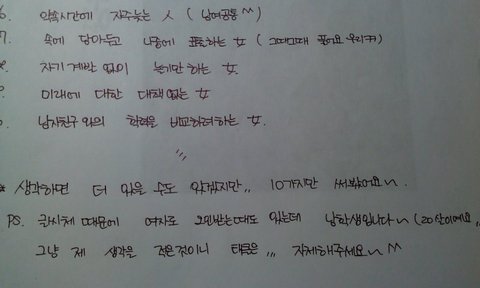 6. 약속시간에 자주늦는 人 (남여공통^^)
7. 속에 담아두고 나중에 표출하는 女 (그때그때 풀어요 우리ㅋㅋ)
자기계발 없이 놀기만 하는 女.
미래에 대한 대책없는 女
남자친구와의 학력을 비교하려하는 女.
* 생각하면 더 있을 수도 있겠지만,, 10가지만 써봤어요~
PS. 글씨체 때문에 여자로 오인받는때도 있는데 남학생입니다~ (20살이에요,,
그냥 제 생각을 적은것이니 태클은,,, 자제해주세요~ ^^